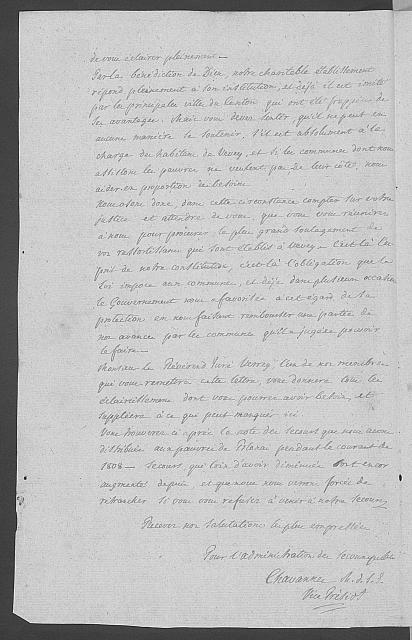 de vous éclairer pleinement —
Par la bénédiction de Dieu, notre charitable établissement
répond pleinement à son institution, et déjà il est imité
par les principales villes du Canton qui ont été frappées de
ses avantages. Mais vous devez sentir, qu'il ne peut en
aucune manière se soutenir, s'il est absolument à la
charge des habitans de Vevey, et si les communes dont nous
assistons les pauvres ne veulent pas de leur côté, nous
aider en proportion de besoin
Nous osons donc, dans cette circonstance compter sur votre
justice et attendre de vous, que vous vous réunirez
à nous pour procurer le plus grand soulagement de
vos ressortissans qui sont établis à Vevey — C'est là l'es
prit de notre constitution, c'est là l'obligation que la
Loi impose aux communes, et déjà dans plusieurs occasions
le Gouvernement nous a favorisés à cet égard de sa
protection en nous faisant rembourser une partie de
nos avances par les communes qu'il a jugées pouvoir
le faire —
Monsieur le Révérend Curé Verrey l'un de nos membres
qui vous remettra cette lettre, vous donnera tous les
éclaircissemens dont vous pourrez avoir besoin, et
suppléera à ce qui peut manquer ici.
Vous trouverez ci après la note des secours que nous avons
distribués aux pauvres de pendant le courant de
1808 — secours qui loin d'avoir diminué sont encor
augmentés depuis et que nous nous verrons forcés de
retrancher si vous vous refusez à venir à notre secours
Recevez nos salutations les plus empressées
Pour l'administration des secours publics
Chavannes
Vice Présidt